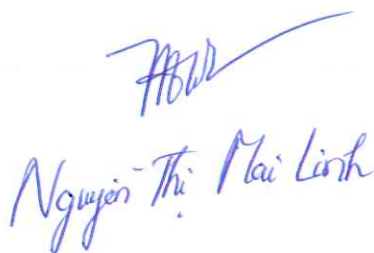 Nguyễn Thị Mai Linh